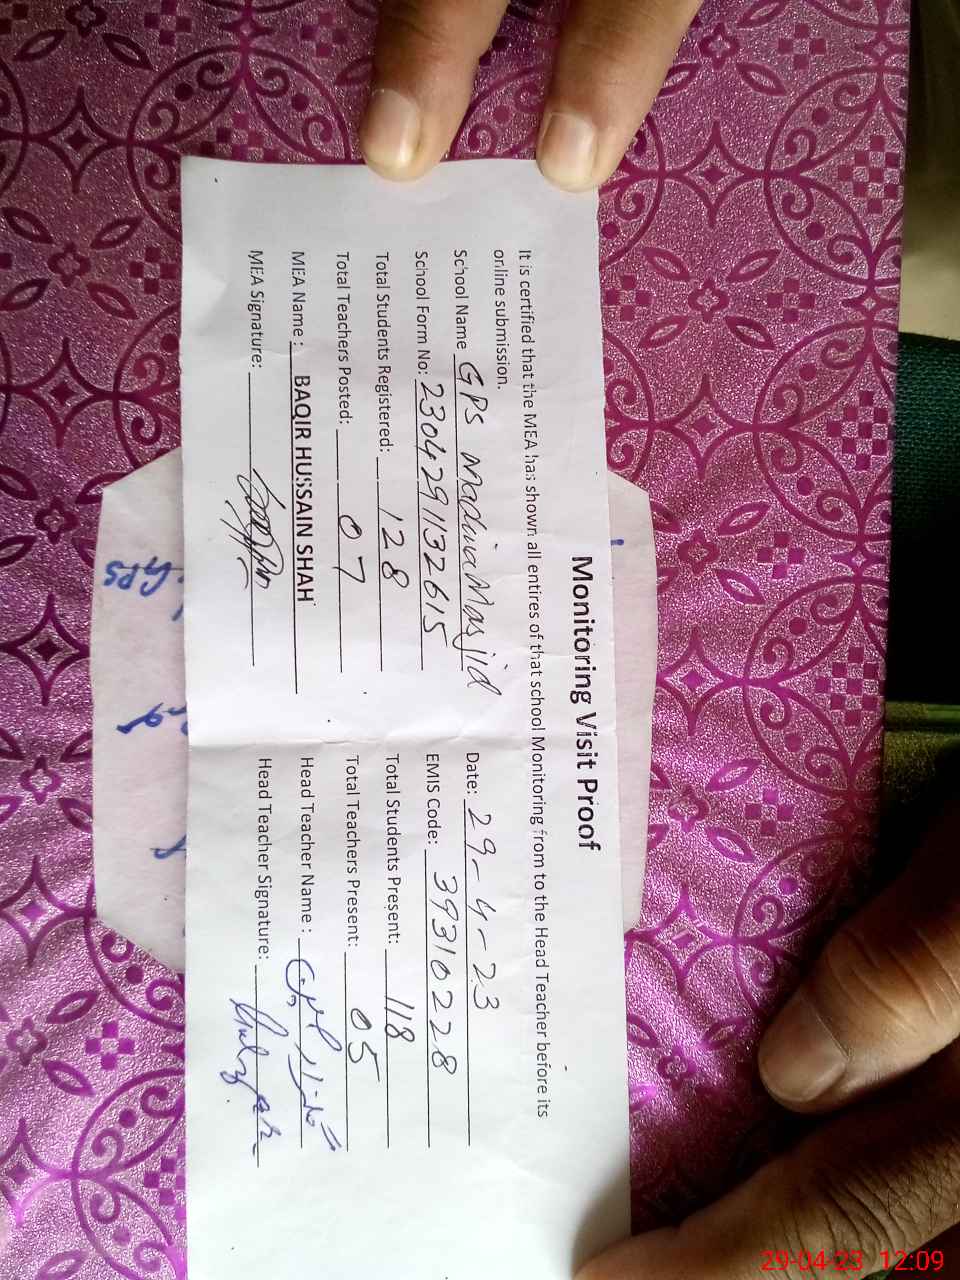 Monitoring Visit Proof
It is certified that the MEA has shown all entires of that school Monitoring from to the Head Teacher before its
online submission.
School Name GPS Madina Masjid Date: 29-4-23
School Form No: 2304291132615 EMIS Code: 39310228
Total Students Registered: 128 Total Students Present: 118
Total Teachers Posted: 07 Total Teachers Present: 05
MEA Name: BAQIR HUSSAIN SHAH Head Teacher Name:
MEA Signature: Head Teacher Signature:
GPS
29-04-23 12:09